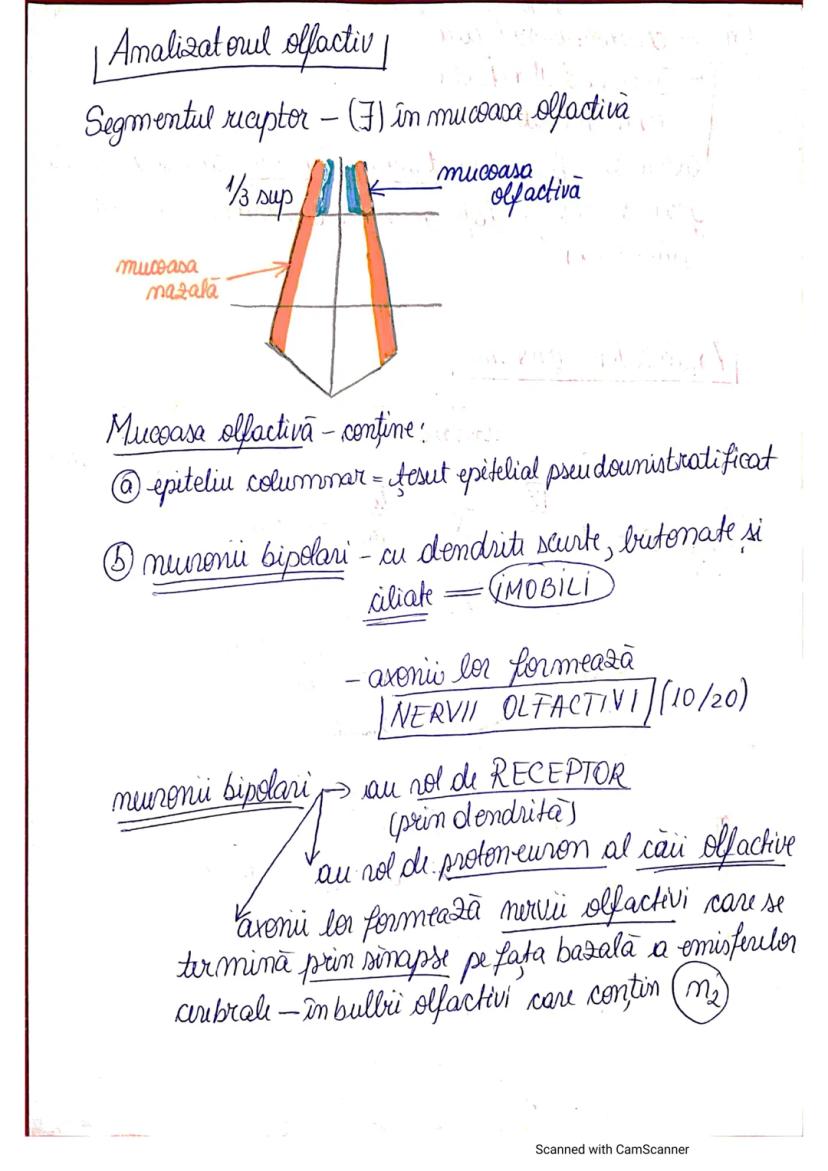 Analizatorul olfactiv
Segmentul receptor – (∃) în mucoasa olfactivă
1/3 sup
mucoasa
olfactivă
mucoasa
nazală
Mucoasa olfactivă – conține:
ⓐ epiteliu columnar = țesut epitelial pseudounistratificat
ⓑ neuronii bipolari – cu dendrite scurte, butonate și
ciliate = IMOBILI
– axonii lor formează
NERVII OLFACTIVI (10/20)
neuronii bipolari → au rol de RECEPTOR
(prin dendrită)
au rol de protoneuron al căii olfactive
axonii lor formează nervii olfactivi care se
termină prin sinapse pe fața bazală a emisferelor
cerebrale – în bulbii olfactivi care conțin n2
Scanned with CamScanner